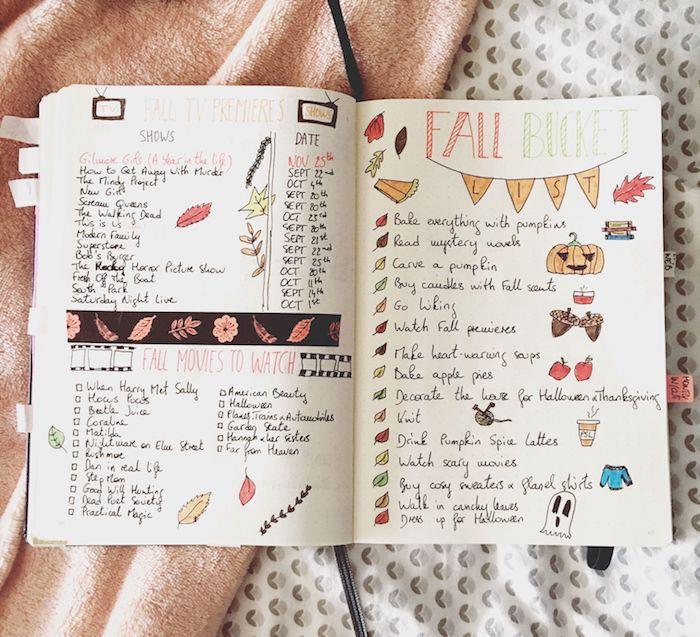 TV FALL TV PREMIERES SHOWS
SHOWS DATE
Gilmore Girls (A Year in the life) NOV 25th
How to Get Away with Murder SEPT 22nd
The Mindy Project OCT 4th
New Girl SEPT 20th
Scream Queens SEPT 20th
The Walking Dead OCT 23rd
This is Us SEPT 20th
Modern Family SEPT 21st
Superstore SEPT 22nd
Bob's Burger SEPT 25th
The Rocky Horror Picture Show OCT 20th
Fresh Off The Boat OCT 11th
South Park SEPT 14th
Saturday Night Live OCT 1st
FALL MOVIES TO WATCH
When Harry Met Sally
Hocus Pocus
Beetle Juice
Coraline
Matilda
Nightmare on Elm Street
Rushmore
Dan in real life
Step Mom
Good Will Hunting
Dead Poet Society
Practical Magic
American Beauty
Halloween
Planes, Trains & Automobiles
Garden State
Hannah & her Sisters
Far from Heaven
FALL BUCKET
LIST
Bake everything with pumpkins
Read mystery novels
Carve a pumpkin
Buy candles with Fall scents
Go hiking
Watch Fall premieres
Make heart-warming soups
Bake apple pies
Decorate the house for Halloween & Thanksgiving
Knit
Drink Pumpkin Spice Lattes
PSL
Watch scary movies
Buy cosy sweaters & flanel shirts
Walk in crunchy leaves
Dress up for Halloween